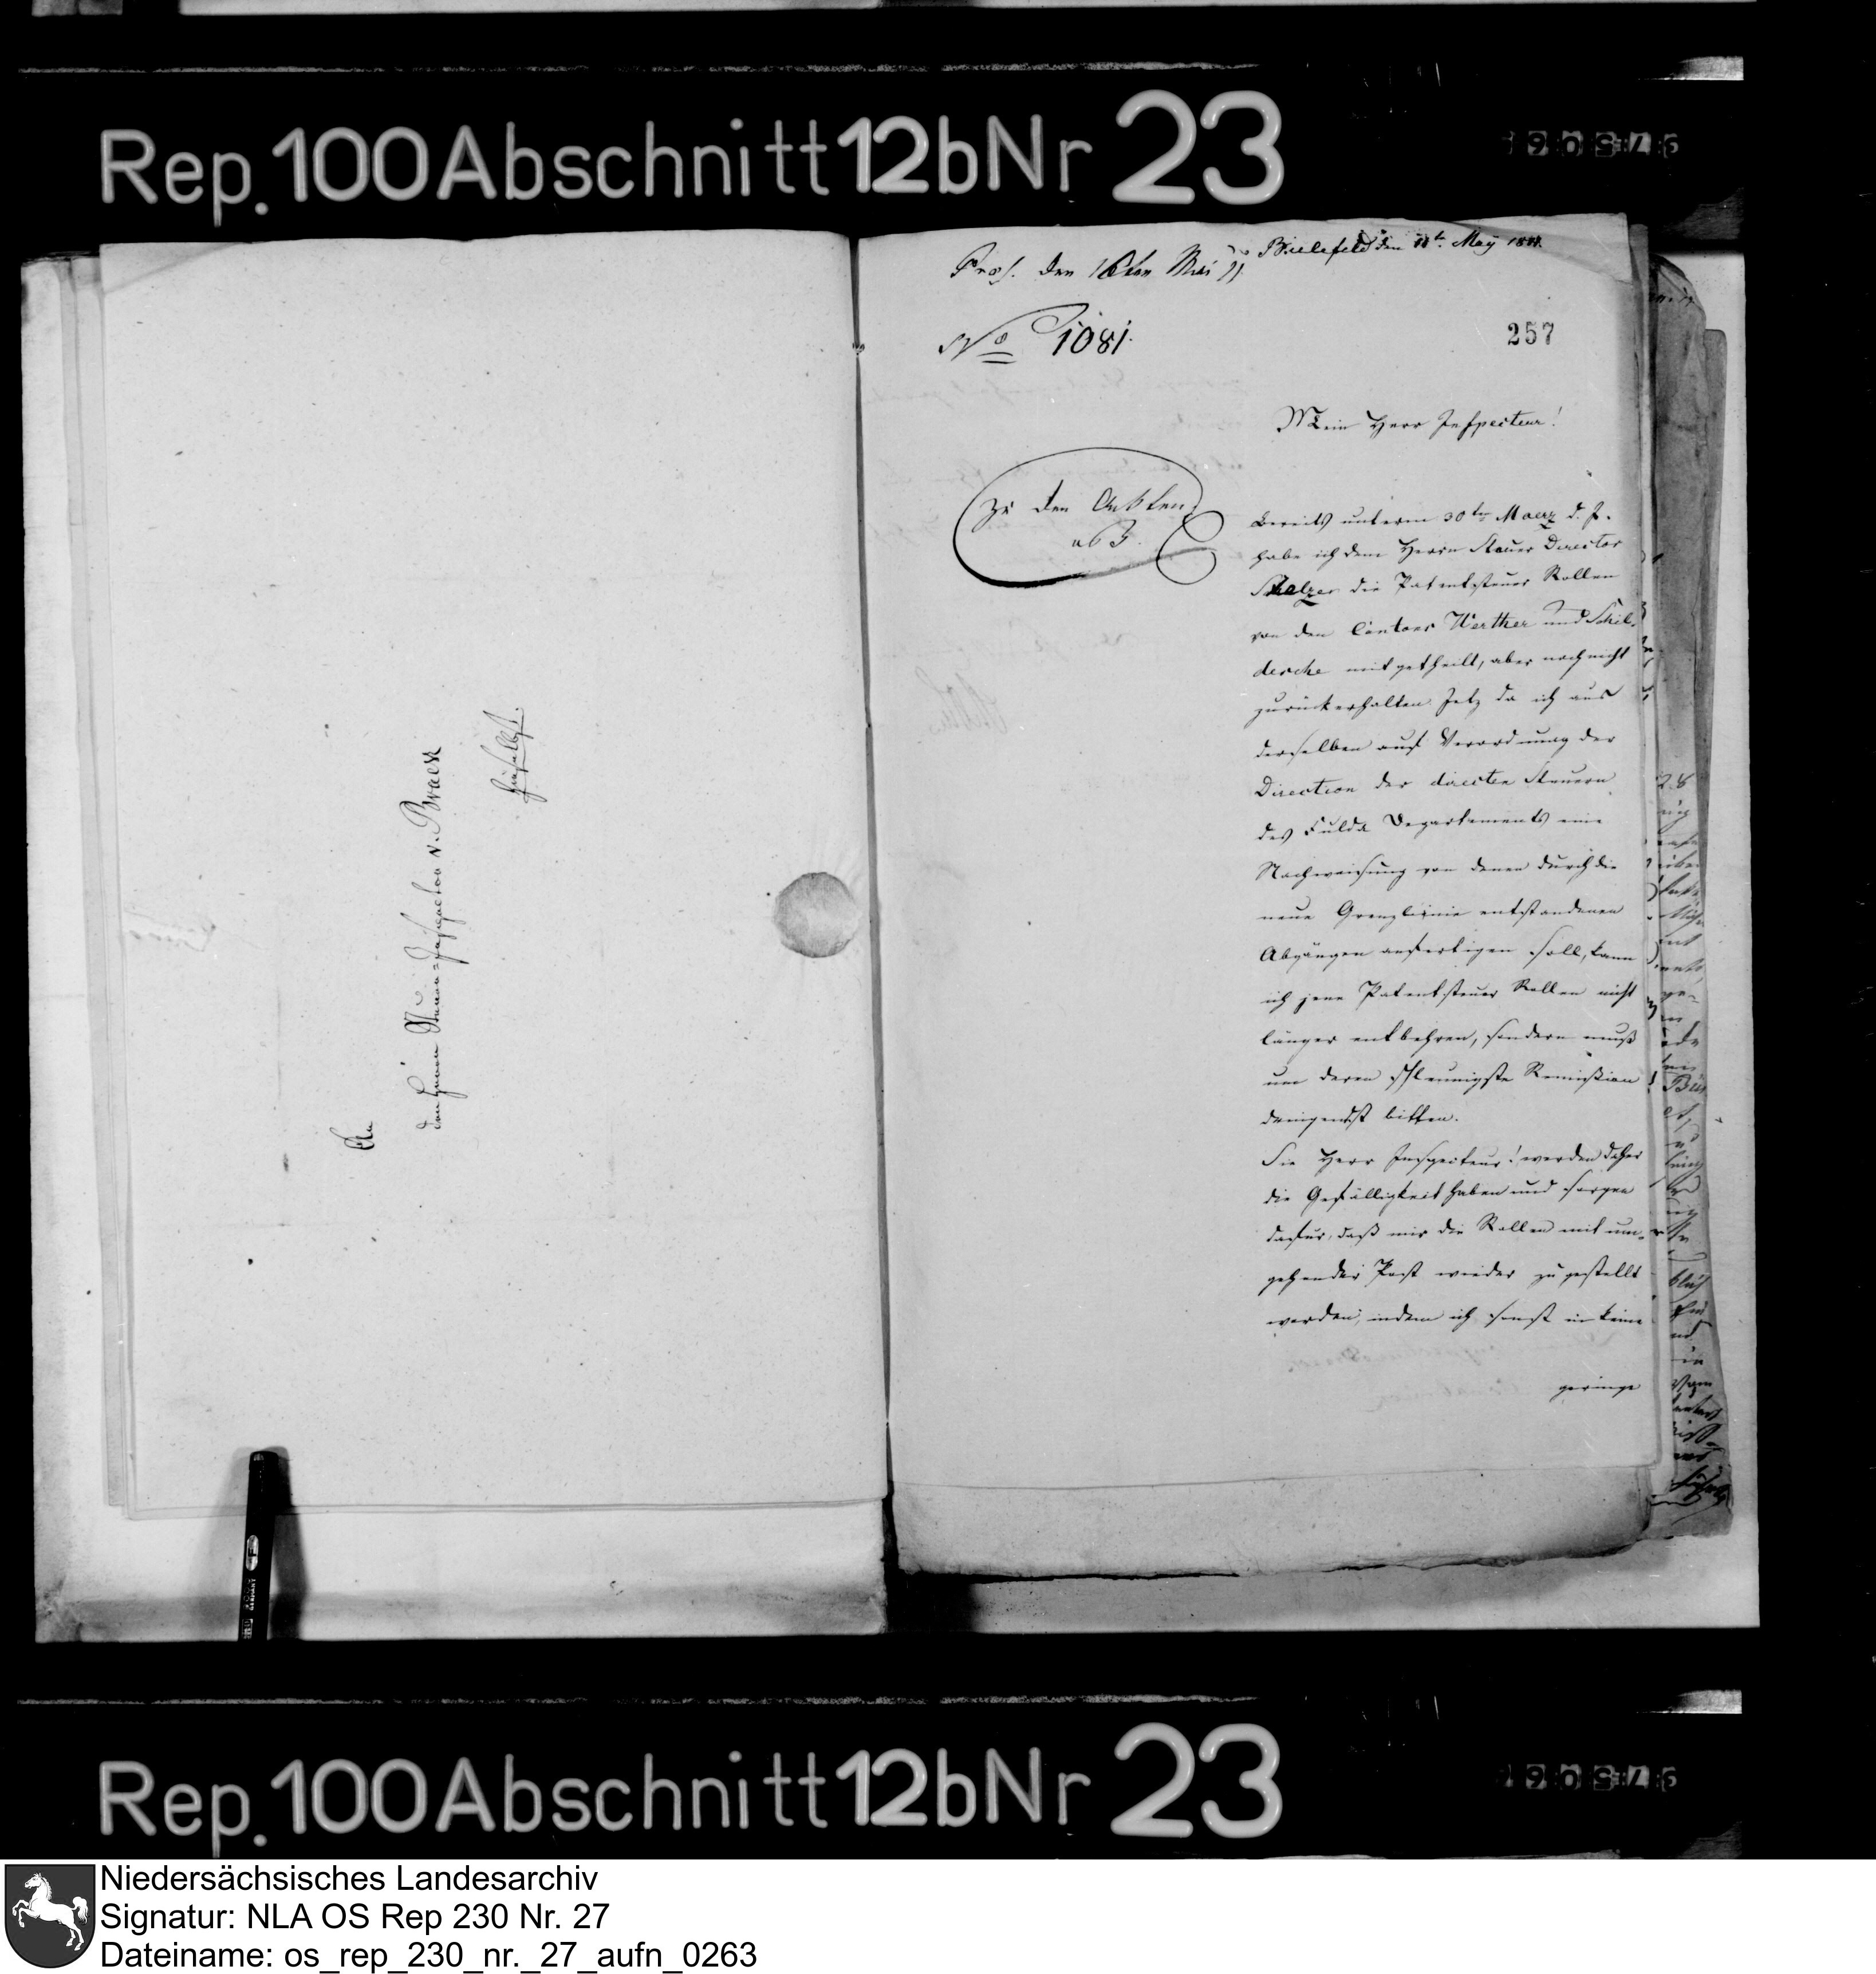 Rep. 100 Abschnitt 12b Nr 23
An
den Herrn Steuer-Inspector v. Braess
hieselbst.
Bielefeld den 11t. May 1811.
Pras. den 16ten Mai 11.
No 1081.
257
Mein Herr Inspecteur!
zu den Ackten
ab
Bereits unterm 30ten Maerz d. J.
habe ich dem Herrn Steuer Director
die Patentsteuer Rollen
von den Cantons Werther und Schil-
desche mitgetheilt, aber noch nicht
zurückerhalten. Jetz da ich aus
derselben auf Verordnung der
Direction der directen Steuern
des Fulda Departements eine
Nachweisung von denen durch die
neue Grenzlinie entstandenen
Abgängen anfertigen soll, kann
ich jene Patentsteuer Rollen nicht
länger entbehren, sondern muß
um deren schleunigste Remission
dringendst bitten.
Sie Herr Inspecteur! werden daher
die Gefälligkeit haben und sorgen
dafür, daß mir die Rollen mit um-
gehender Post wieder zugestellt
werden, indem ich sonst in keine
geringe
Rep. 100 Abschnitt 12b Nr 23
Niedersächsisches Landesarchiv
Signatur: NLA OS Rep 230 Nr. 27
Dateiname: os_rep_230_nr._27_aufn_0263